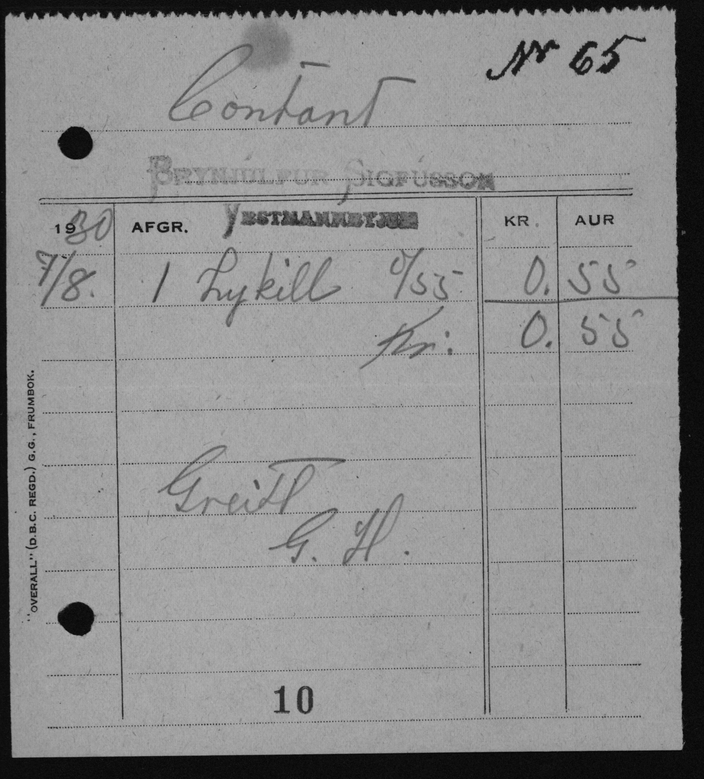 Nr 65
Contant
BRYNJÚLFUR SIGFÚSSON
VESTMANNEYJUM
1930 AFGR. KR. AUR
7/8. 1 Lykill 0/55 0. 55
Kr: 0. 55
Greitt
G. H.
10
"OVERALL" (D.B.C. REGD.) G.G., FRUMBOK.